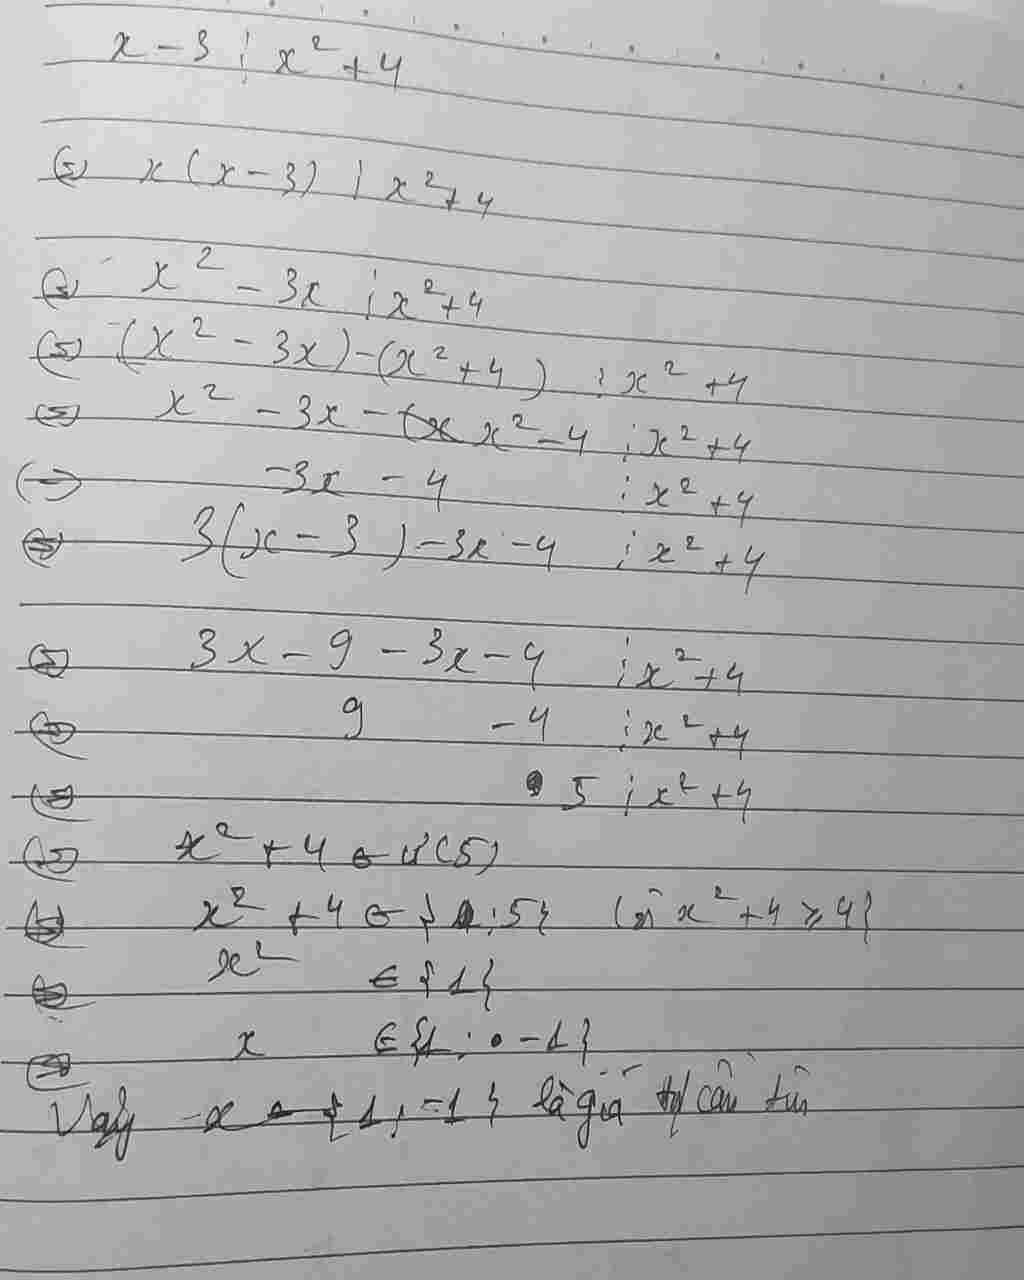 x - 3 ⋮ x² + 4
(=) x(x - 3) ⋮ x² + 4
(=) x² - 3x ⋮ x² + 4
(=) (x² - 3x) - (x² + 4) ⋮ x² + 4
(=) x² - 3x - x² - 4 ⋮ x² + 4
(=) -3x - 4 ⋮ x² + 4
(=) 3(x - 3) - 3x - 4 ⋮ x² + 4
(=) 3x - 9 - 3x - 4 ⋮ x² + 4
(=) 9 - 4 ⋮ x² + 4
(=) 5 ⋮ x² + 4
(=) x² + 4 ∈ Ư(5)
(=) x² + 4 ∈ { ; 5} (vì x² + 4 ⩾ 4}
(=) x² ∈ {1}
(=) x ∈ {1 ; -1}
Vậy x ∈ {1; -1} là giá trị cần tìm